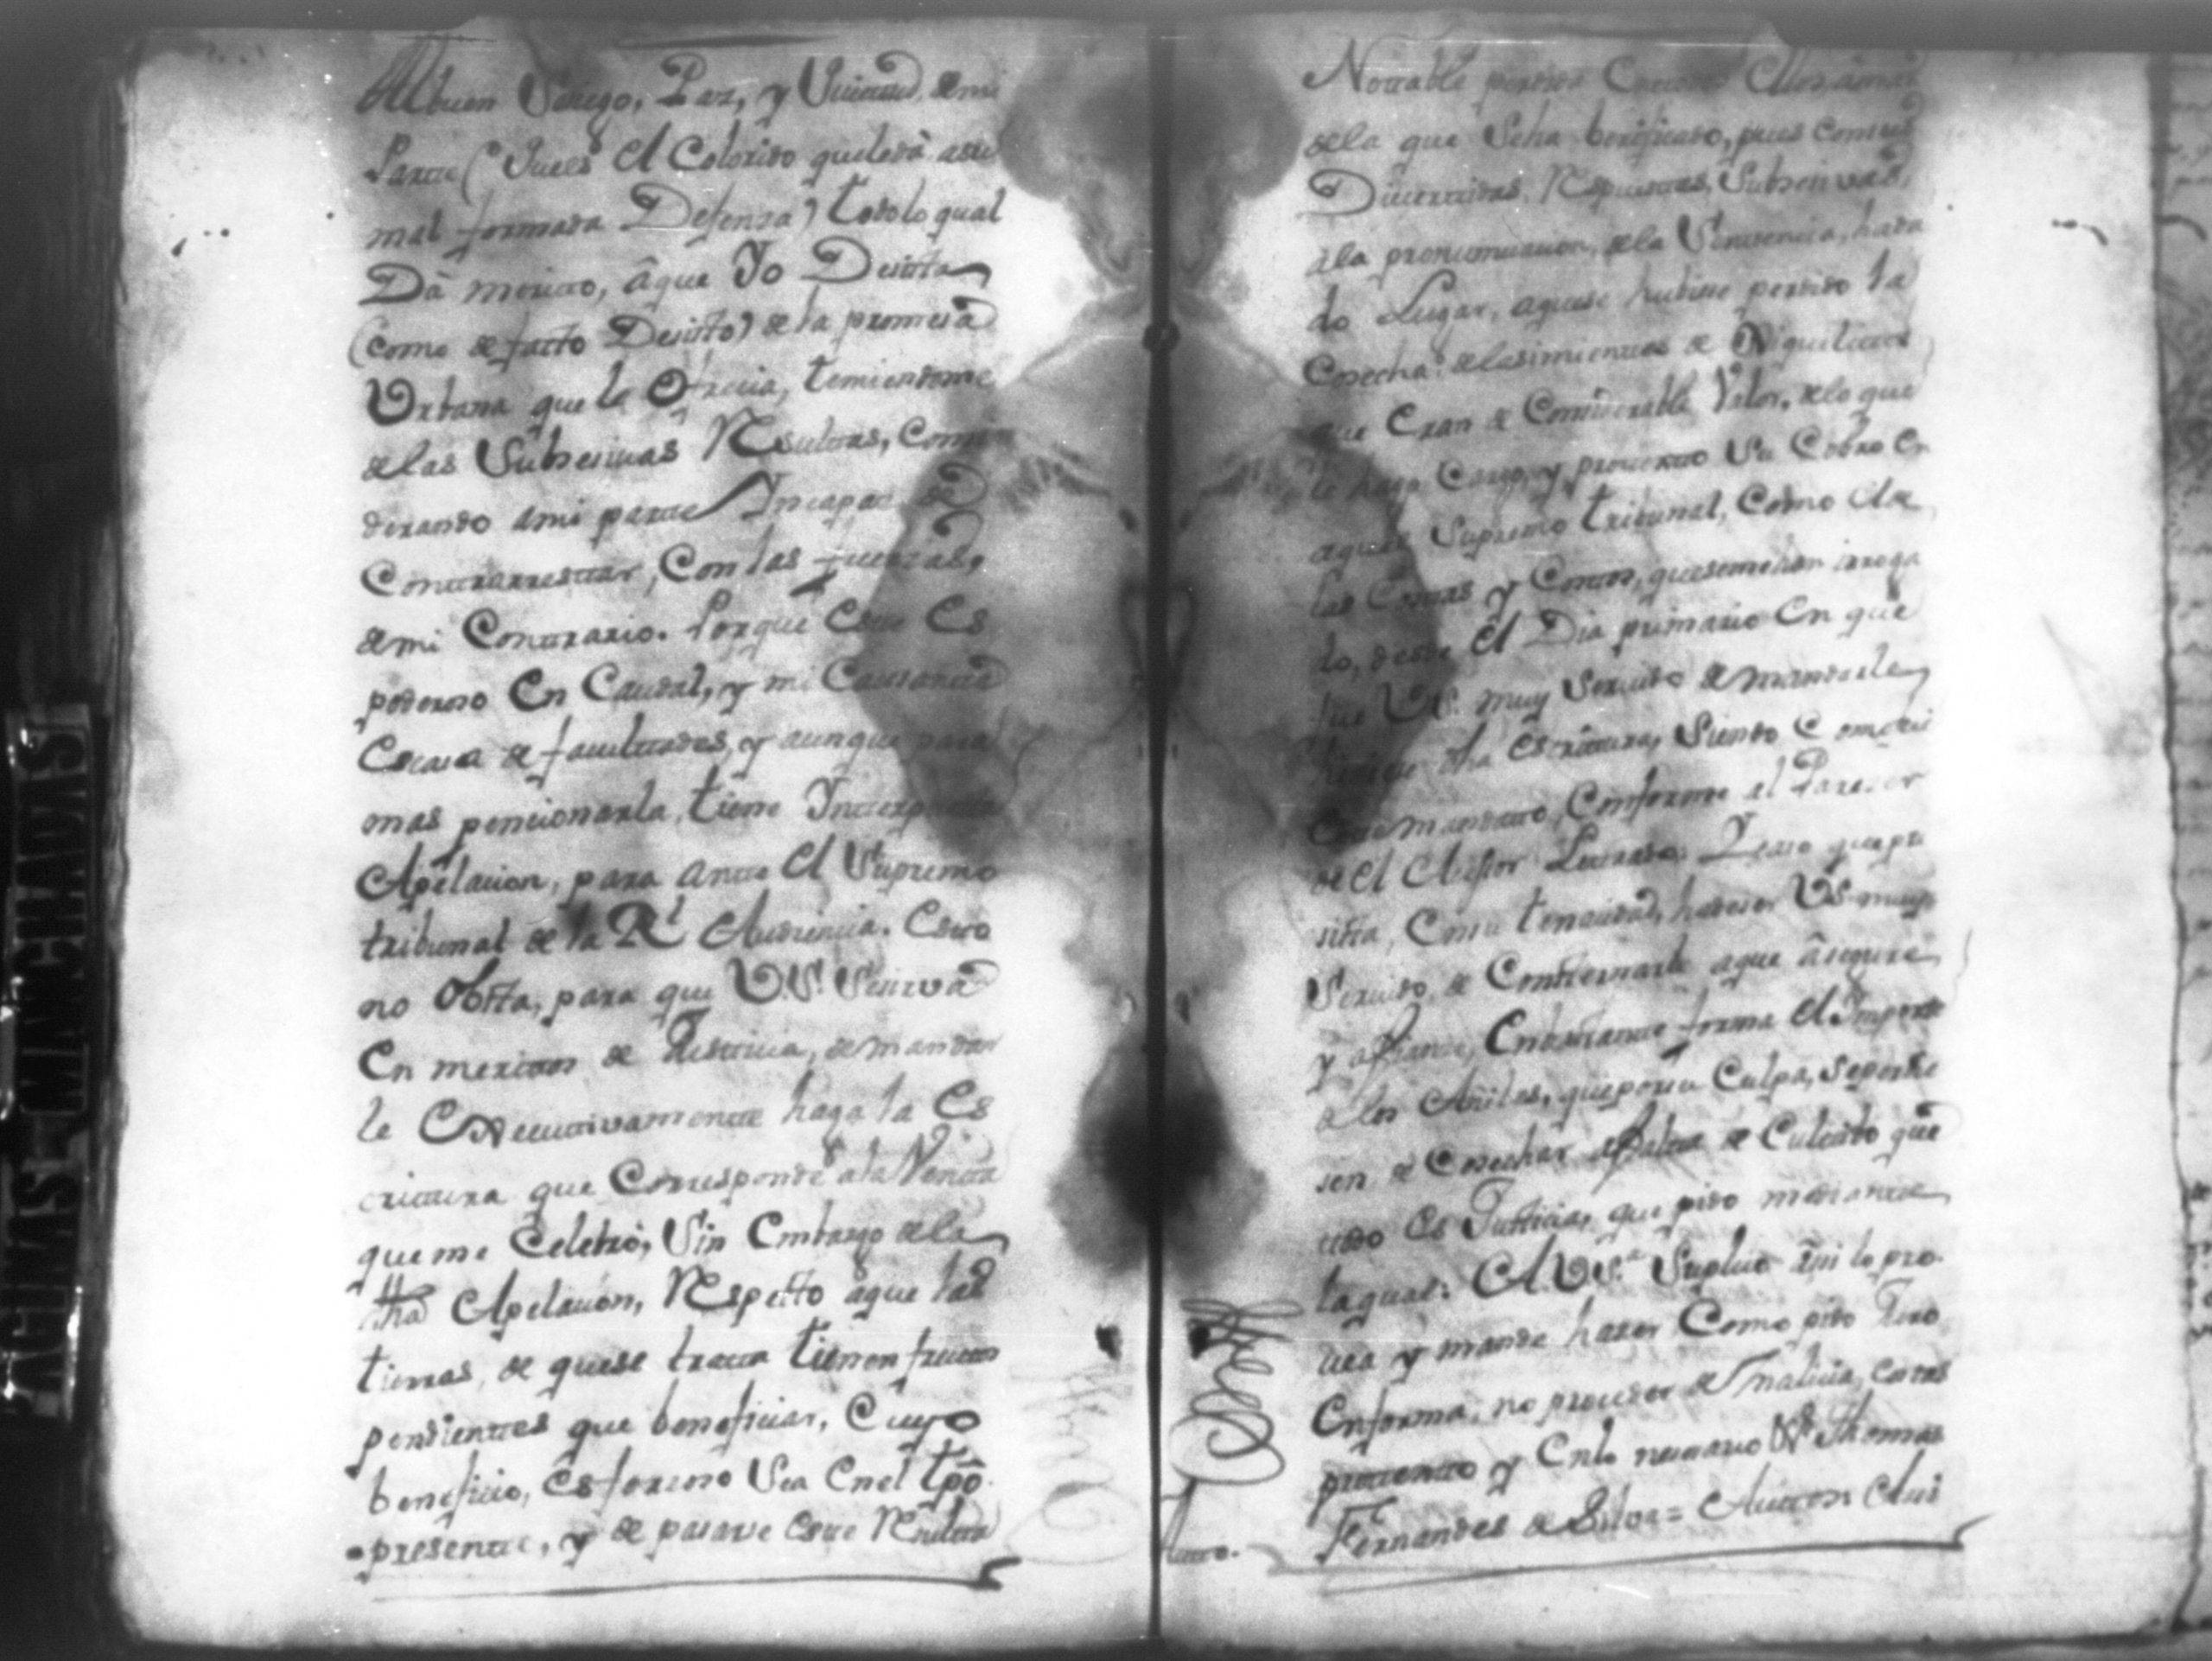 Al buen Sosiego, Paz, y Quietud, de mi
Parte (Pues el Colorido que leda asu
mal formada Defensa) todo lo qual
Dà merito, âque Yo Desista
(como de facto Desisto) de la promesa
Urbana que le Ofrecia, temiendome
de las Subsesivas Resultas, Consi
derando ami parte Yncapas de
Contrarrestar, Con las fuerzas,
de mi Contrario. Porque Este Es
poderoso En Caudal, y mi Causante
Escasa de facultades, y aunque para
mas pencionarla, tiene Ynterpuesta
Apelacion, para ante el Supremo
tribunal de la Rl Audiencia. Esto
no Obsta, para que U.S. Se sirva
En meritos de Justicia, de mandar
le Executivamente haga la Es
critura que Corresponde ala Venta
que me Celebrò, Sin Embargo de la
dha Apelacion, Respetto âque las
tierras, de que se trata tienen frutos
pendientes que beneficiar, Cuyo
beneficio, Es forzoso Sea En el tpô.
presente, y de pasarse Este Resulta
Notable perdida
de la que Seha benificado, pues Con sus
Divertidas, Respuestas, Subsesivas,
ala pronunciacion, de la Sentencia, hada
do Lugar, aque se hubiese perdido la
Cosecha de las simientes de Xiquilites
que Eran de Considerable Valor, de lo que
le hago Cargo, y protexto Su Cobro En
aquel Supremo tribunal, Como el de
las Costas y Costos, que se me han irroga
do, desde El Dia primario En que
fue US. muy Servido de mandarle
hiciese dha Escritura, Siendo
Este mandato, Conforme al Pareser
de el Asesor Letrado.
sista, Con su tenacidad, ha de ser US. muy
Servido, de Condenarle aque âsegure
y afianse, En bastante forma el Ymporte
de los Añiles, que por su Culpa, se perdie
sen de Cosechar Cultibo que
todo Es Justicia, que pido mediante
la qual: A US.a Suplico âsi lo pro-
vea y mande hazer Como pido Juro
En forma, no proceder de malicia, costas
protexto y En lo nesesario Dn Thomas
Auto. Fernandes de Silva = Autos: